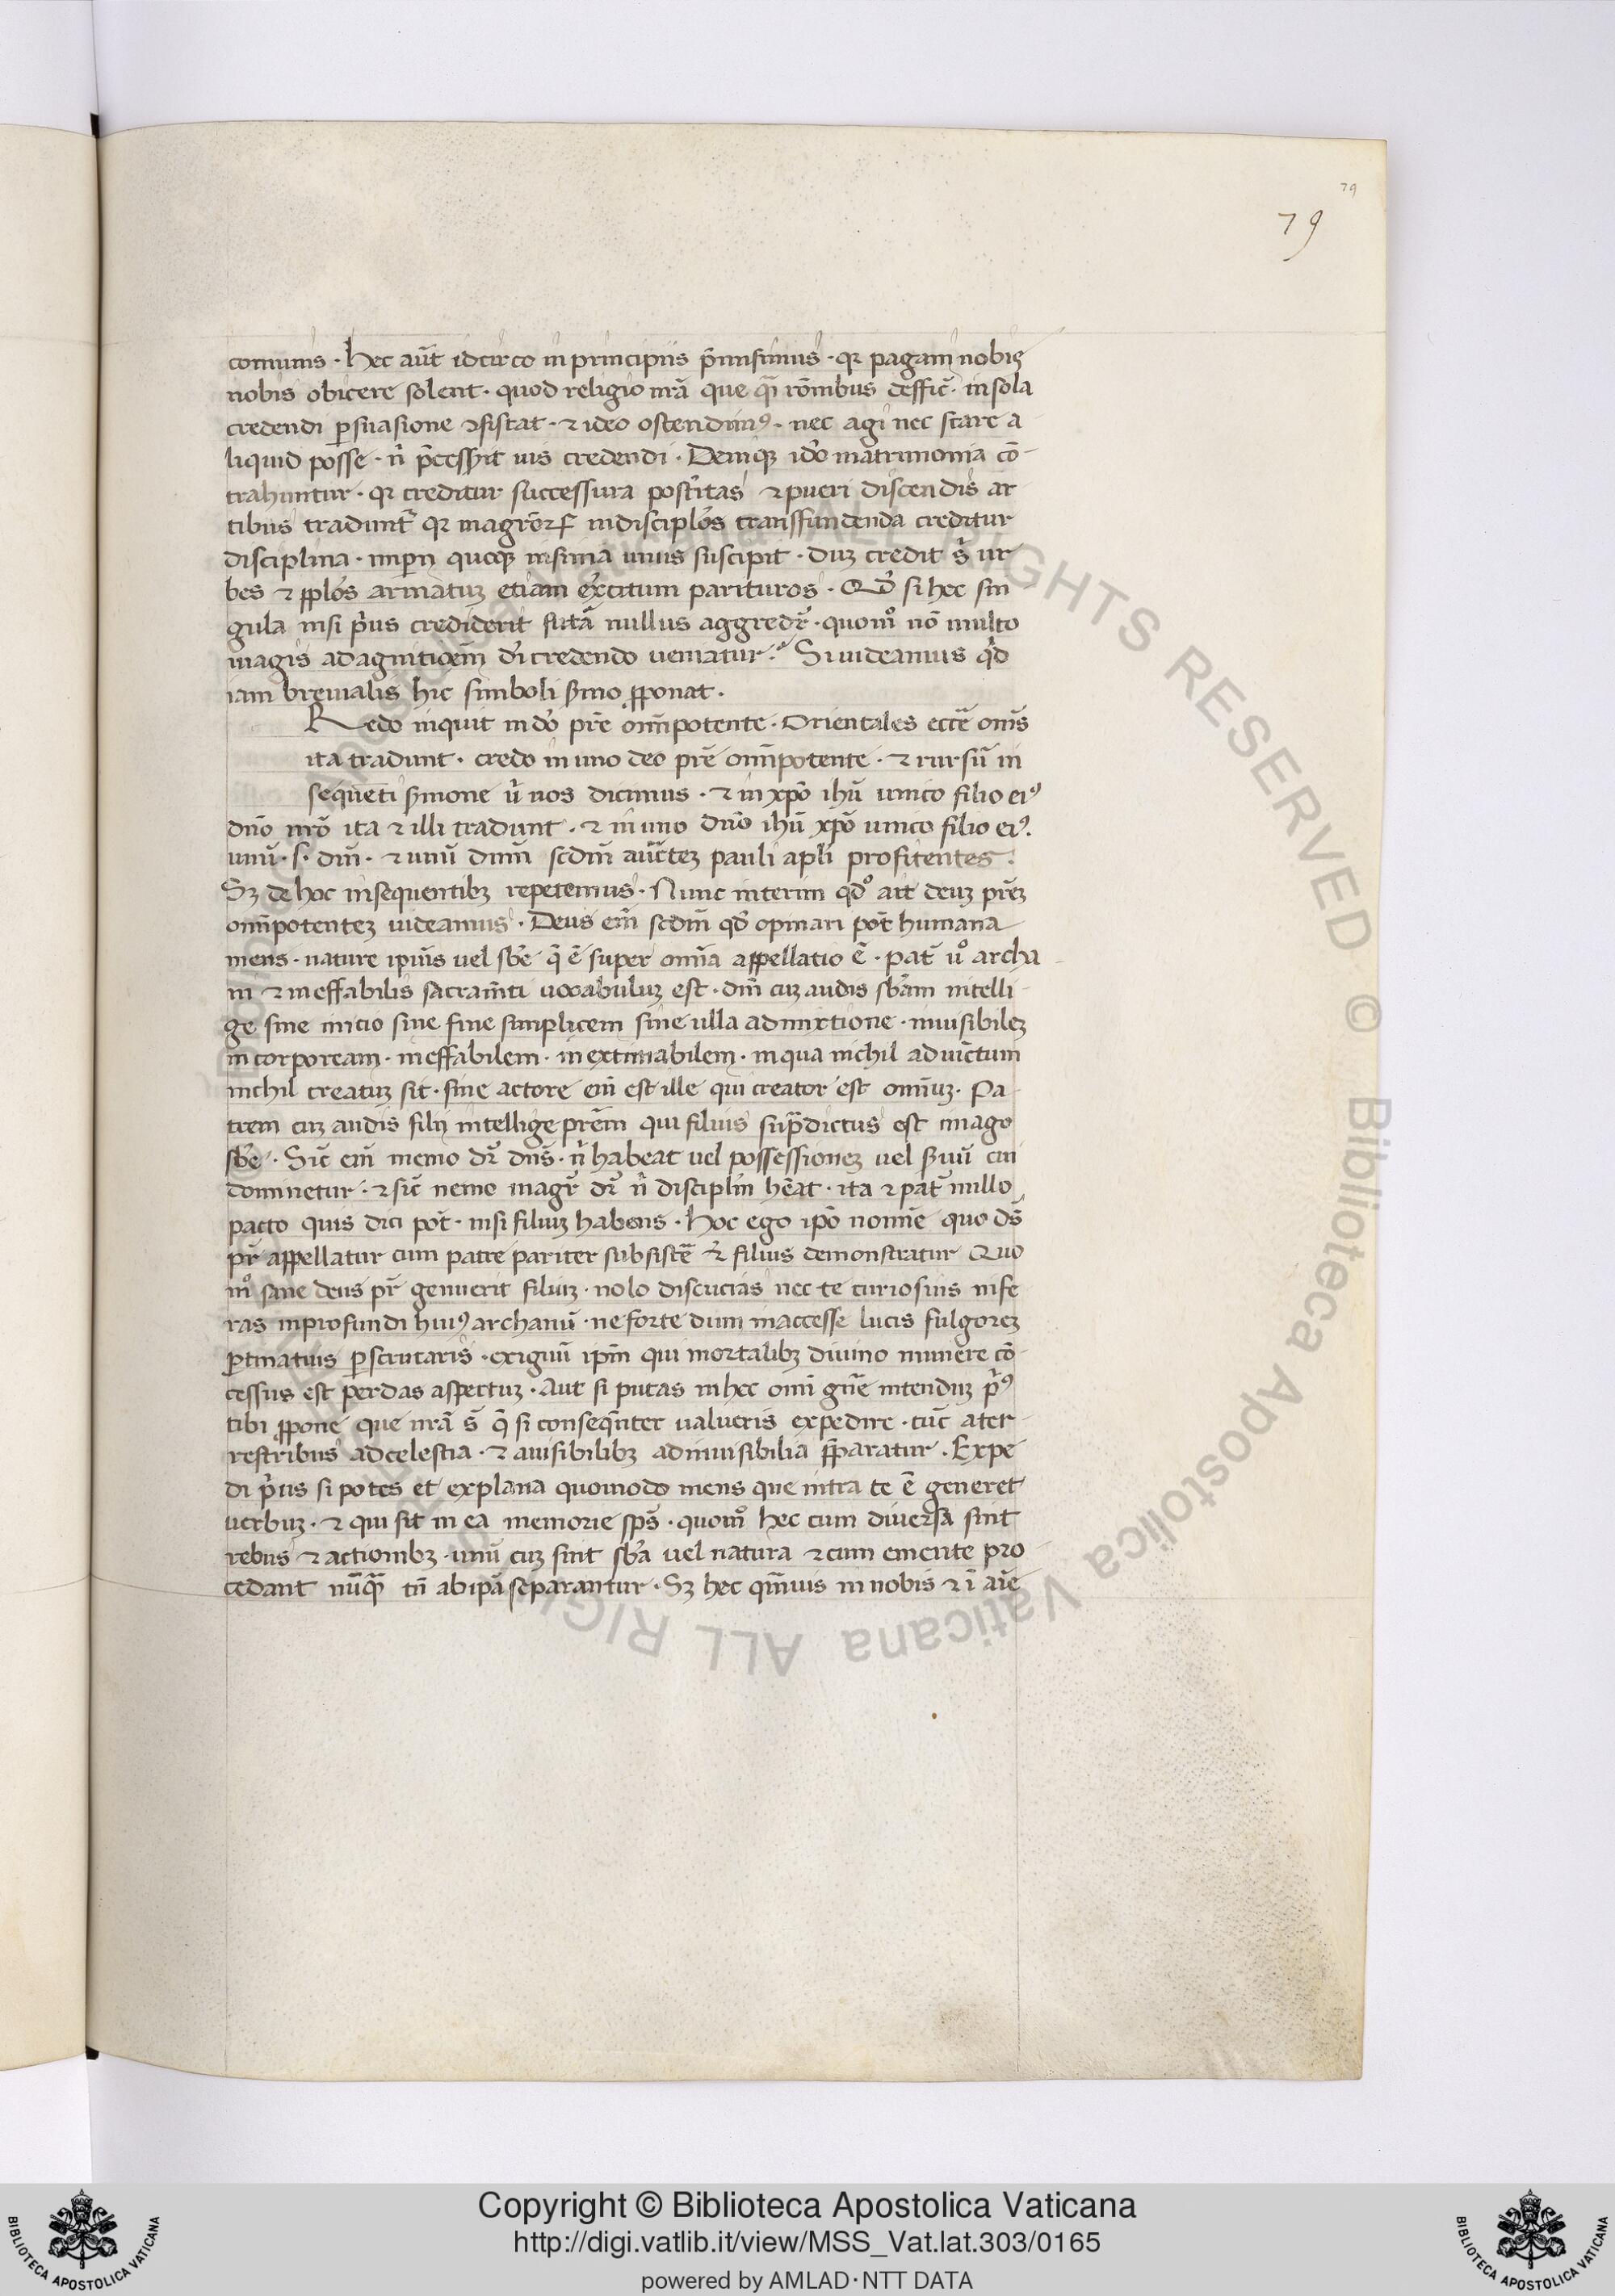 79
79
comunis · Hec aut̄ idcirco in principiis p̄misimus · qr pagani nobis
nobis obicere solent · quod religio nr̄a que qͣi rōnibus deffic̄ · in sola
credendi ꝑsuasione ꝯsistat · ⁊ ideo ostendimꝰ · nec agi nec stare a
liquid posse · ń p̄cesserit uis credendi · Deniqꝫ ido matrimonia cō
trahuntur · qr creditur successura post̓itas ⁊ pueri discendis ar
tibus tradunt̓ qr magroꝝ in discipl̓os transfundenda creditur
disciplina · imperii quoqꝫ insinia unus suscipit · duꝫ credit s̓ ur
bes ⁊ pplo̓s armatuꝫ etiam exe̓citum parituros · Qd̓ si hec sin
gula nisi p̓us crediderit fut̄a nullus aggredr̄ · quom̊ nō multo
magis ad agnitioēm di̓ credendo ueniatur · Si uideamus qd̓
iam breuialis hic simboli s̓mo ꝓponat ·
Redo inquit in do̓ pr̄e om̄ipotente · Orientales eccl̄e om̄s
ita tradunt · credo in uno deo pr̄e om̄ipotente · ⁊ rursū in
sequēti s̓mone u̓ nos dicimus · ⁊ in xpō ihū unico filio eiꝰ
dn̄o nr̄o ita ⁊ illi tradunt · ⁊ in uno dn̄o ihū xpō unico filio eiꝰ ·
unū · s · dm̄ · ⁊ unū dnm̄ scdm̄ auct̄teꝫ pauli apl̄i profitentes ·
Sꝫ de hoc in sequentibꝫ repetemus · Nunc interim qd̊ ait deuꝫ pr̄eꝫ
om̄ipotenteꝫ uideamus · Deus em̄ scdm̄ qd̓ opinari pot̄ humana
mens · nature ipiu̓s uel sb̓e q̄ ē super omn̄ia appellatio ē · pat̄ ů archa
ni ⁊ ineffabilis sacram̄ti uocabuluꝫ est · dm̄ cuꝫ audis sb̓am intelli
ge sine inicio sine fine simplicem sine ulla admixtione · inuisibileꝫ
incorpoream · ineffabilem · inextimabilem · in qua nichil adiunctum
nichil creatuꝫ sit · sine actore em̄ est ille qui creator est omniuꝫ · Pa
trem cuꝫ audis filij intellige pr̄em qui filius supͣdictus est imago
sb̓e · Sic̄ em̄ nemo dr̄ dn̄s · ń habeat uel possessioneꝫ uel s̓uū cui
dominetur · ⁊ sic̄ nemo magr̄ dr̄ ń disciplm̄ hēat · ita ⁊ pat̄ nullo
pacto quis dici pot̄ · nisi filiuꝫ habens · Hoc ego ipo̓ nomīe quo ds̄
pr̄ appellatur cum patre pariter subsistē ⁊ filius demonstratur Quo
m̊ sane deus pr̄ genuerit filiuꝫ · nolo discucias nec te curiosius infe
ras in profundi huiꝰ archanū · ne forte dum inaccesse lucis fulgoreꝫ
ꝑtinatius ꝑscrutaris · exiguū ipm̄ qui mortalibꝫ diuino munere cō
cessus est perdas aspectuꝫ · Aut si putas in hec omī gn̄e intenduꝫ p̓ꝰ
tibi ꝓpone que nr̄a s̄ q̄ si conseqn̄ter ualueris expedire · tūc a ter
restribus ad celestia · ⁊ a uisibilibꝫ ad inuisibilia ꝓparatur · Expe
di p̓us si potes et explana quomodo mens que intra te ē generet
uerbuꝫ · ⁊ qui sit in ea memorie sps̄ · quom̊ hec cum diuersa sint
rebus ⁊ actionibꝫ · unū cuꝫ sint sb̓a uel natura ⁊ cum e mente pro
cedant nūqͣ tn̄ ab ipa̓ separantur · Sꝫ hec qm̄uis in nobis ⁊ ī aīe
Copyright © Biblioteca Apostolica Vaticana
http://digi.vatlib.it/view/MSS_Vat.lat.303/0165
powered by AMLAD · NTT DATA